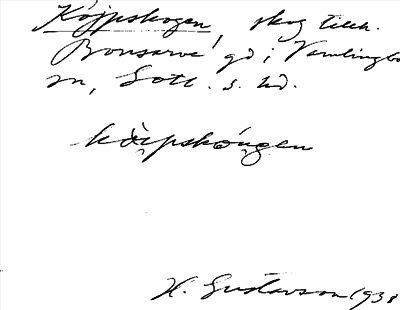 Köjpskogen, skog tillh.
Bonsarve gd i Vamlingbo
sn, Gotl. s. hd.
kö̀ipskógen
H. Gustavson 1938